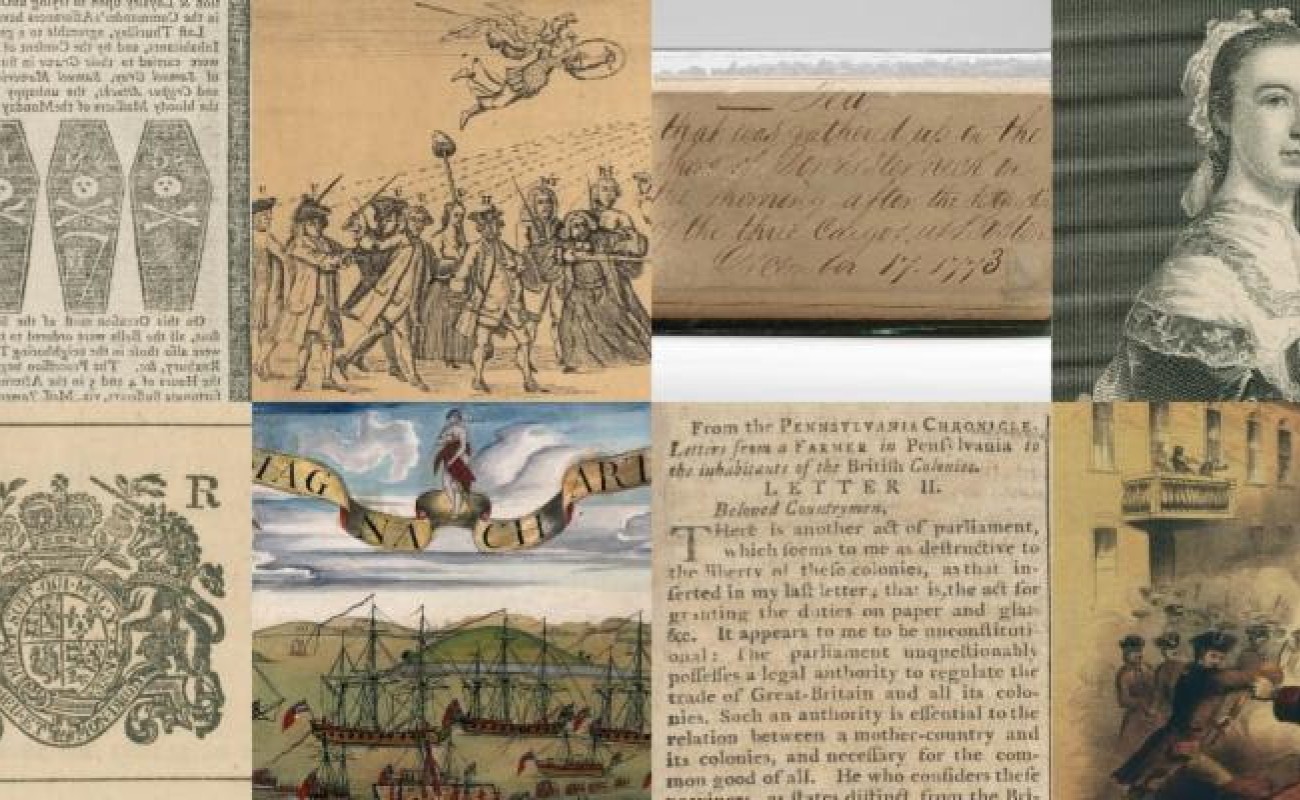 in the Commander's Assurances
Last Thursday, agreeable to a
Inhabitants, and by the Consent of
were carried to their Grave in
of Samuel Gray, Samuel Maverick
and Crispus Attucks, the unhappy
the bloody Massacre of the Monday
On this Occasion most of the
all the Bells were ordered to
were also those in the neighboring
Roxbury, &c. The Procession
the Hours of 4 and 5 in the
Tea
that was gathered up on the
morning after the
of the three Cargos at Boston
December 17. 1773
R
MAG
NA
CH
ART
From the PENNSYLVANIA CHRONICLE.
Letters from a FARMER in Pensylvania to
the inhabitants of the British Colonies.
LETTER II.
Beloved Countrymen,
THere is another act of parliament,
which seems to me as destructive to
the liberty of these colonies, as that in-
serted in my last letter; that is, the act for
granting the duties on paper and glas
&c. It appears to me to be unconstituti-
onal: The parliament unquestionably
possesses a legal authority to regulate the
trade of Great-Britain and all its colo-
nies. Such an authority is essential to the
relation between a mother-country and
its colonies, and necessary for the com-
mon good of all. He who considers these
provinces, as states distinct from the Bri-